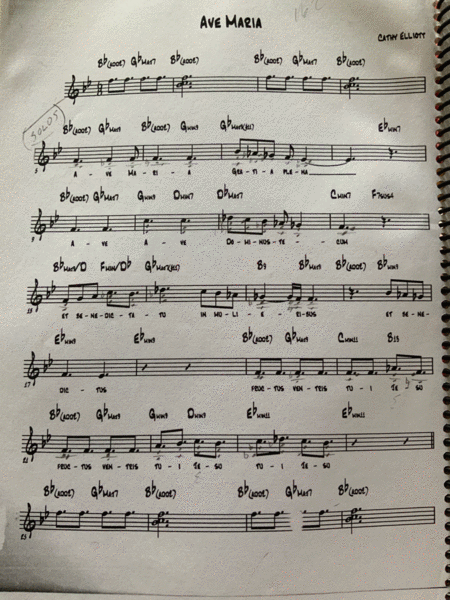 Ave Maria
Cathy Elliott
Bb(add2) GbMaj7 Bb(add2) Bb(add2) GbMaj7 Bb(add2)
Solos
Bb(add2) GbMaj9 Bb(add2) Gmin9 GbMaj7(#11) Ebmin7
A - ve Ma - ri - a Gra - ti - a ple - na
Bb(add2) GbMaj7 Gmin9 Dmin7 DbMaj7 Cmin7 F7sus4
A - ve A - ve Do - mi - nus - te - cum
BbMaj9/D Fmin/Db GbMaj7(#11) B9 BbMaj9 Bb(add2) Bbmin9
et be - ne - dic - ta - tu in mu - li - e - ribus et be - ne -
Ebmin9 Ebmin9 Bb(add2) GbMaj9 Cmin11 B13
dic - tus fruc - tus ven - tris tu - i Je - so
Bb(add2) GbMaj9 Gmin9 Dmin9 Ebmin11 Ebmin11
fruc - tus ven - tris tu - i Je - so tu - i Je - so
Bb(add2) GbMaj7 Bb(add2) Bb(add2) GbMaj7 Bb(add2)